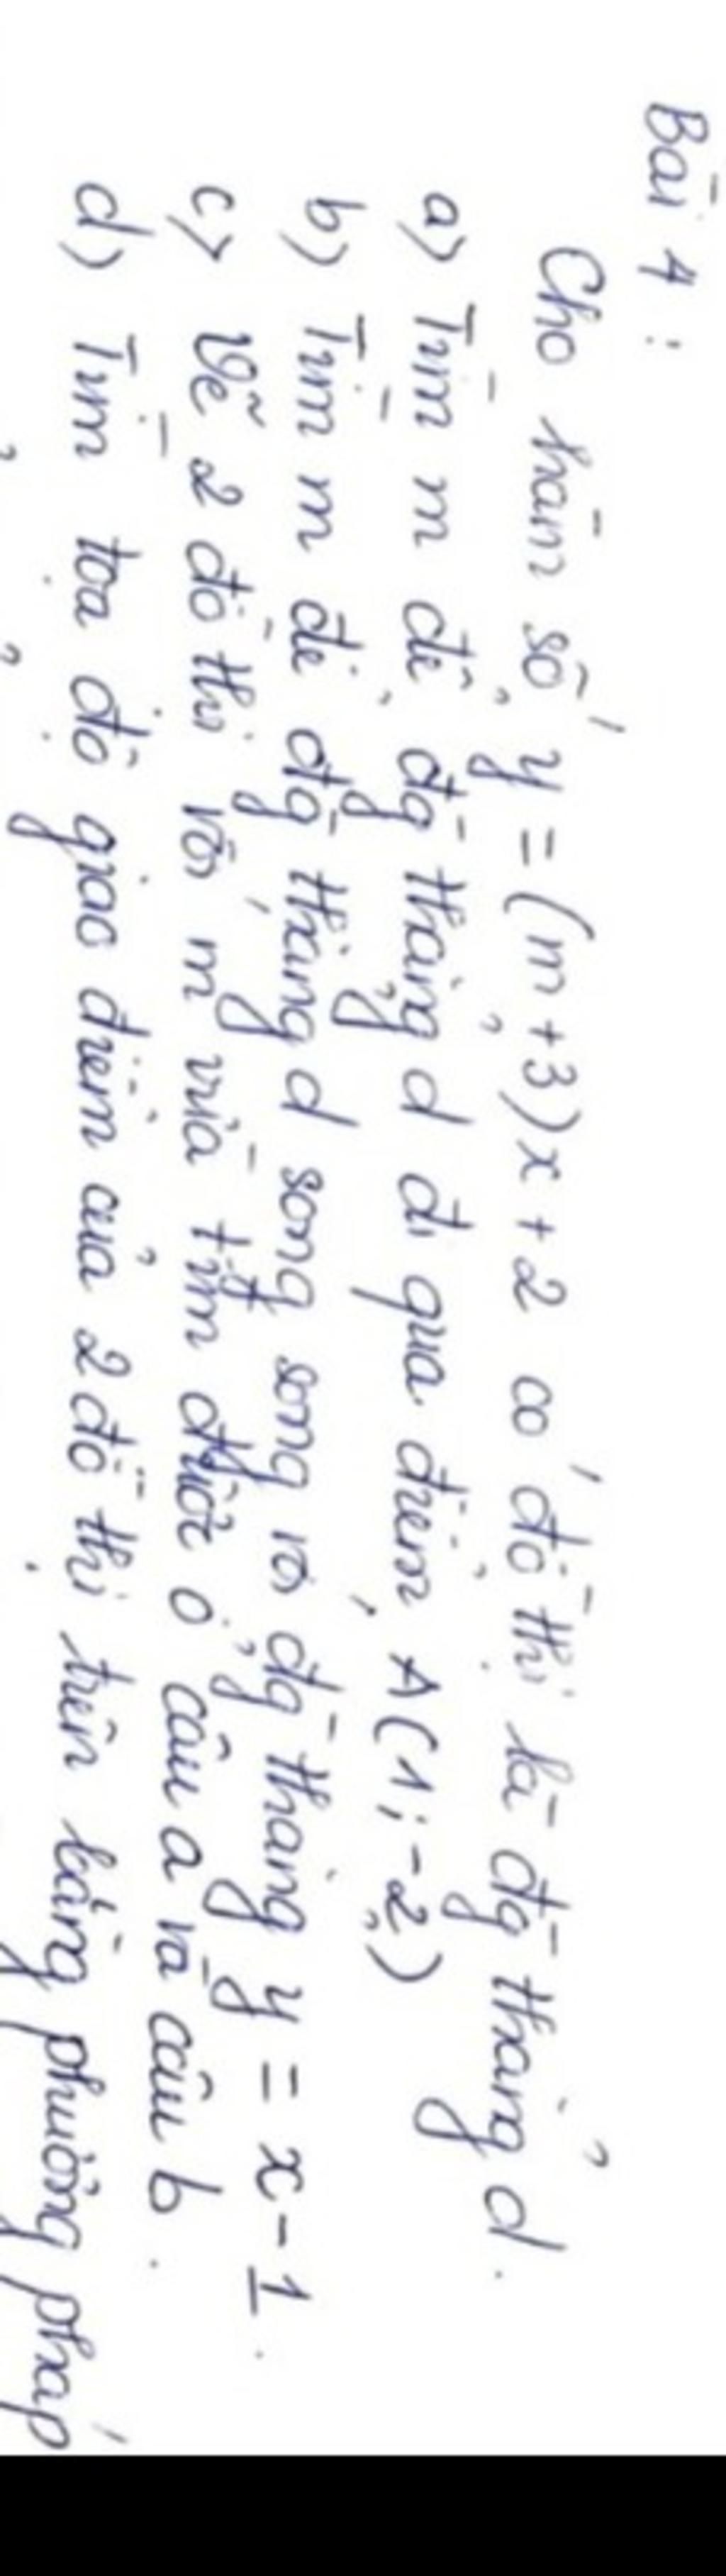 Bài 4 :
Cho hàm số y = (m+3)x + 2 có đồ thị là đg thẳng d.
a) Tìm m để đg thẳng d đi qua điểm A(1;-2)
b) Tìm m để đg thẳng d song song với đg thẳng y = x - 1.
c) Vẽ 2 đồ thị với m vừa tìm được ở câu a và câu b.
d) Tìm tọa độ giao điểm của 2 đồ thị trên bằng phương pháp